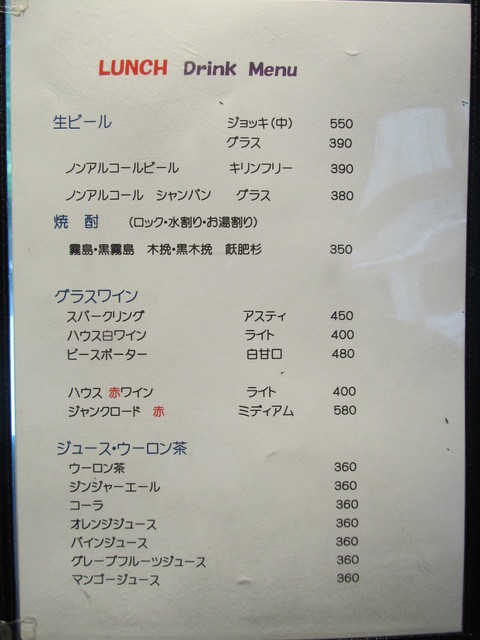 LUNCH Drink Menu
生ビール ジョッキ(中) 550
グラス 390
ノンアルコールビール キリンフリー 390
ノンアルコール シャンパン グラス 380
焼 酎 (ロック・水割り・お湯割り)
霧島・黒霧島 木挽・黒木挽 飫肥杉 350
グラスワイン
スパークリング アスティ 450
ハウス白ワイン ライト 400
ピースポーター 白甘口 480
ハウス 赤ワイン ライト 400
ジャンクロード 赤 ミディアム 580
ジュース・ウーロン茶
ウーロン茶 360
ジンジャーエール 360
コーラ 360
オレンジジュース 360
パインジュース 360
グレープフルーツジュース 360
マンゴージュース 360